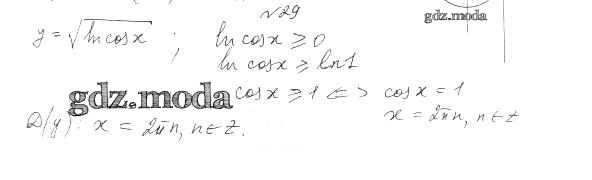 №29
gdz.moda
y = √ln cos x ; ln cos x ≥ 0
ln cos x ≥ ln 1
gdz.moda cos x ≥ 1 <=> cos x = 1
D(y): x = 2πn, n ∈ Z.
x = 2πn, n ∈ Z